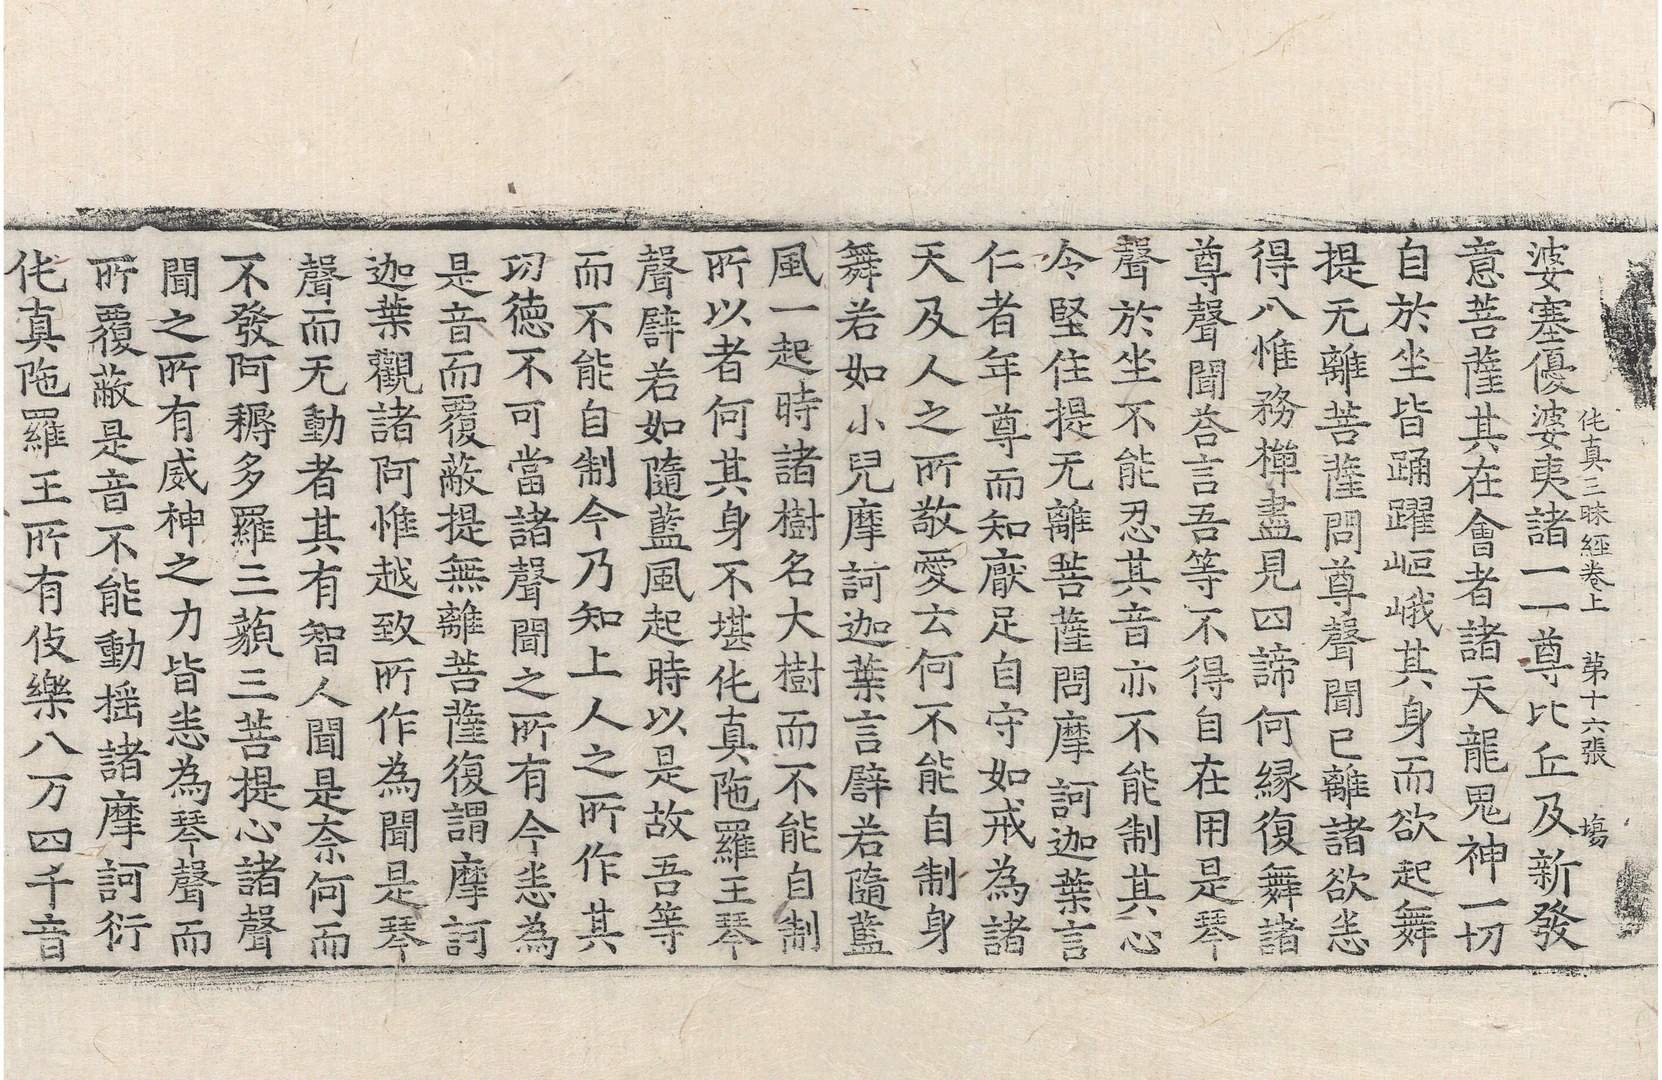 伅真三昧經卷上 第十六張 塲
婆塞優婆夷諸一一尊比丘及新發
意菩薩其在會者諸天龍鬼神一切
自於坐皆踊躍岖峨其身而欲起舞
提无離菩薩問尊聲聞已離諸欲悉
得八惟務禪盡見四諦何緣復舞諸
尊聲聞荅言吾等不得自在用是琴
聲於坐不能忍其音亦不能制其心
令堅住提无離菩薩問摩訶迦葉言
仁者年尊而知猒足自守如戒為諸
天及人之所敬愛云何不能自制身
舞若如小兒摩訶迦葉言譬若隨藍
風一起時諸樹名大樹而不能自制
所以者何其身不堪伅真陁羅王琴
聲譬若如隨藍風起時以是故吾等
而不能自制今乃知上人之所作其
功德不可當諸聲聞之所有今悉為
是音而覆蔽提無離菩薩復謂摩訶
迦葉觀諸阿惟越致所作為聞是琴
聲而无動者其有智人聞是奈何而
不發阿耨多羅三藐三菩提心諸聲
聞之所有威神之力皆悉為琴聲而
所覆蔽是音不能動揺諸摩訶衍
伅真陁羅王所有伎樂八万四千音